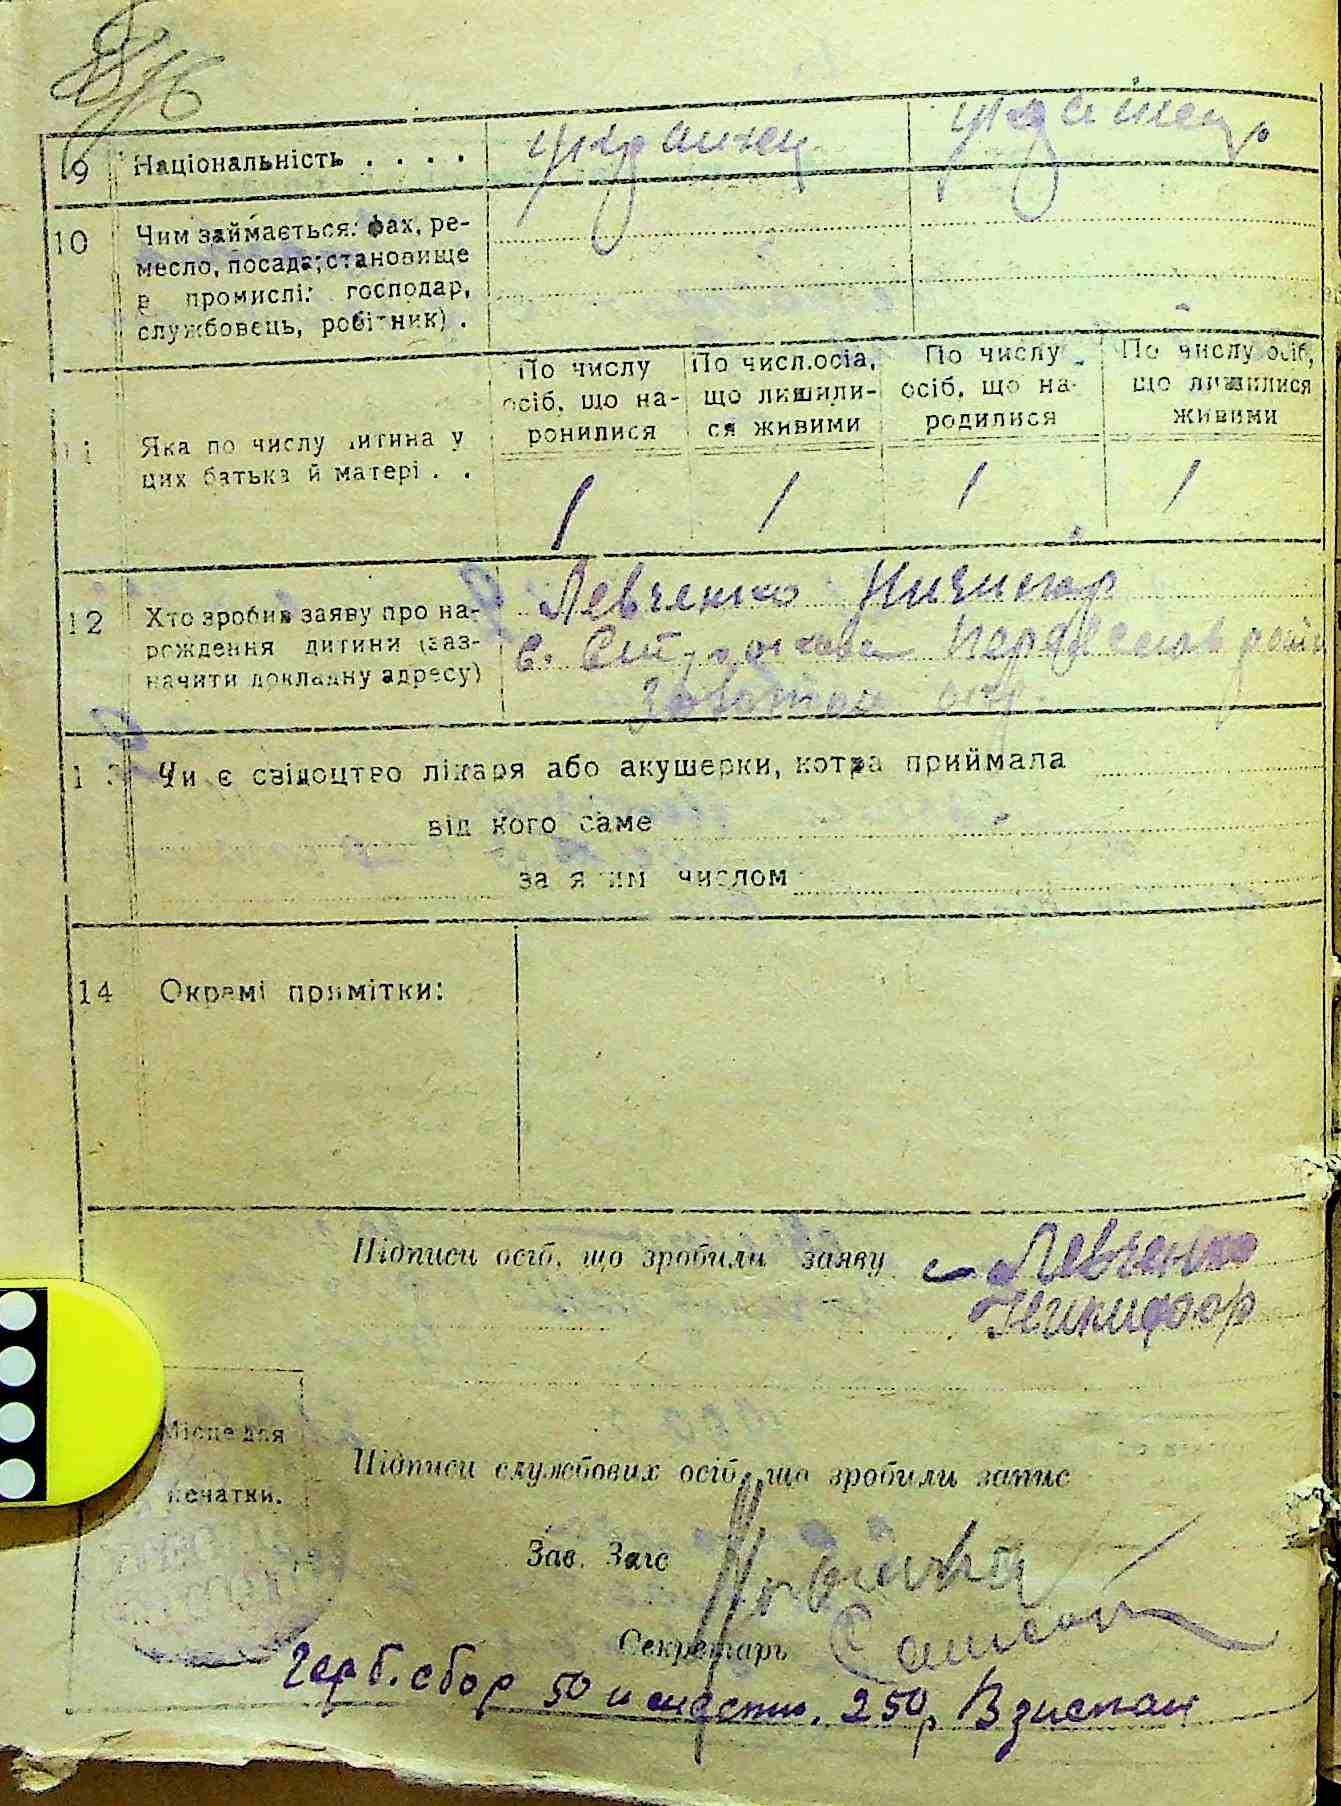 9 Національність . . . . украинец украинец
10 Чим займається: фах, ре-
месло, посада; становище
в промислі: господар,
службовець, робітник) .
По числу осіб, що на- ронилися
По числ.осіа, що лишили- ся живими
По числу осіб, що на- родилися
По числу осіб, що лишилися живими
11 Яка по числу дитина у
цих батька й матері . . 1 1 1 1
12 Хто зробив заяву про на- Левченко
рождення дитини (заз- с.
начити докладну адресу)
13 Чи є свідоцтво лікаря або акушерки, котра приймала
від кого саме
за яким числом
14 Окремі примітки:
Підписи осіб, що зробили заяву Левченко
Никифор
Місце для
печатки.
Підписи службових осіб, що зробили запис
Зав. Загс
Секретарь
Герб. сбор 50 и 250р Взыскан